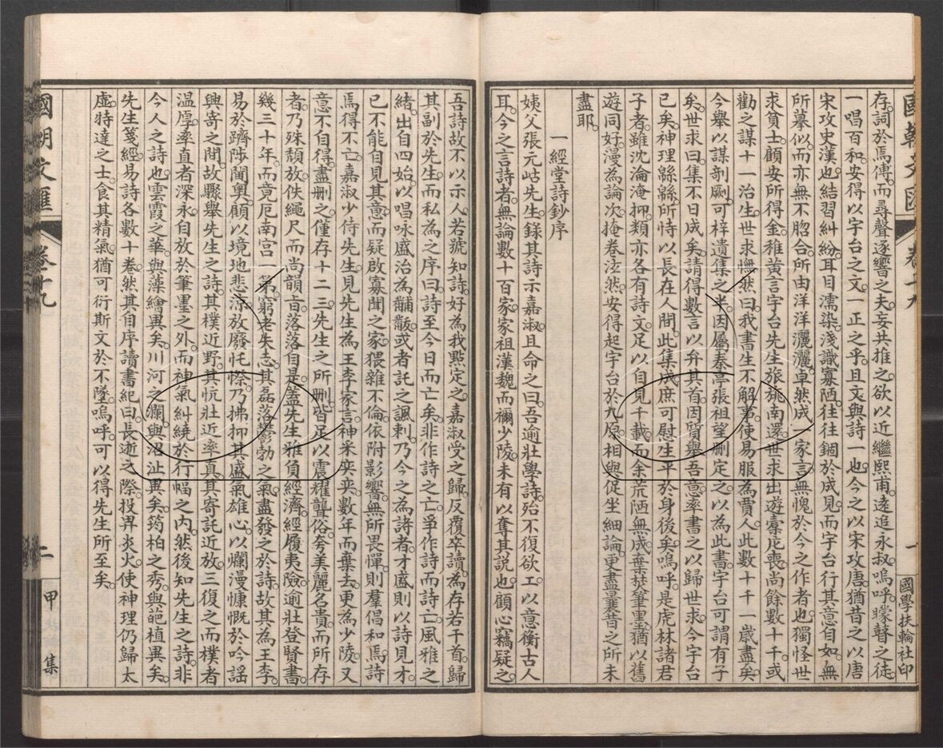 國朝文匯 卷十九 一 國學扶輪社印
存詞於馬傅而尋聲逐響之夫妄共推之欲以近繼熙甫遠追永叔嗚呼矇瞽之徒
一唱百和安得以宇台之文一正之乎且文與詩一也今之以宋攻唐猶昔之以唐
宋攻史漢也結習糾紛耳目濡染淺識寡陋往往錮於成見而宇台行其意自如無
所摹似而亦無不脗合所由洋洋灑灑卓然成一家言無愧於今之作者也獨怪世
求貧士顧安所得金雅黃言宇台先生張桃南還世求出遊臺厄喪尚餘數十千或
勸之謀十一治生世求憮然曰我書生不解事使易服為賈人此數十千一歲盡矣
今舉以謀剞劂可梓遺集之半因屬泰亭張祖望刪定之以為此書宇台可謂有子
矣世求曰集不日成矣請得數言以弁其首因貿舉吾意率書之以歸世求今宇台
已矣神理緜緜所恃以長在人間此集成庶可慰生平於身後矣嗚呼是虎林諸君
子者雖沈淪淹抑類亦各有詩文足以自見千載而余荒陋無成棄焚筆墨猶以舊
遊同好漫為論次掩卷泫然安得起宇台於九原相與促坐細論更盡曩昔之所未
盡耶
一經堂詩鈔序
姨父張元岵先生錄其詩示嘉淑且命之曰吾逾壯學詩殆不復欲工以意衡古人
耳今之言詩者無論數十百家家祖漢魏而禰少陵未有以奪其說也顧心竊疑之
吾詩故不以示人若號知詩好為我點定之嘉淑受之歸反覆卒讀為存若干首歸
其副於先生而私為之序曰詩至今日而亡矣非作詩之亡爭作詩而詩亡風雅之
緒出自四始以唱咏盛治為黼黻或者託之諷刺乃今之為詩者才盛則以詩見才
已不能自見其意而疑啟寡聞之家猥雜不倫依附影響無所畏憚則羣倡和焉詩
焉得不亡嘉淑少侍先生見先生為王李家言神采奕奕數年而棄去更為少陵又
意不自得盡刪之僅存十二三先生之所刪皆足以震耀聾俗夸美麗名貴而所存
者乃殊頹放佚繩尺而尚韻旨落落自是蓋先生雅負經濟經履夷險逾壯登賢書
幾三十年而竟厄南宮一第窮老失志其磊落鬱勃之氣盡發之於詩故其為王李
易於躋陟閫奧顧以境地悲涼放廢忨愒乃拂抑其盛氣雄心以爛漫慷慨於吟謠
興寄之間故驟舉先生之詩其樸近野其忼壯近率真其寄託近放三復之而樸者
溫厚率直者深永自放於筆墨之外而神氣糾繞於行幅之內然後知先生之詩非
今人之詩也雲霞之華與藻繪異矣川河之瀾與沼沚異矣筠柏之秀與葩植異矣
先生箋經易詩各數十卷然其自序讀書紀曰長逝之際投畀炎火使神理仍歸太
虛特達之士食其精氣猶可衍斯文於不墜嗚呼可以得先生所至矣
國朝文匯 卷十九 二 甲集